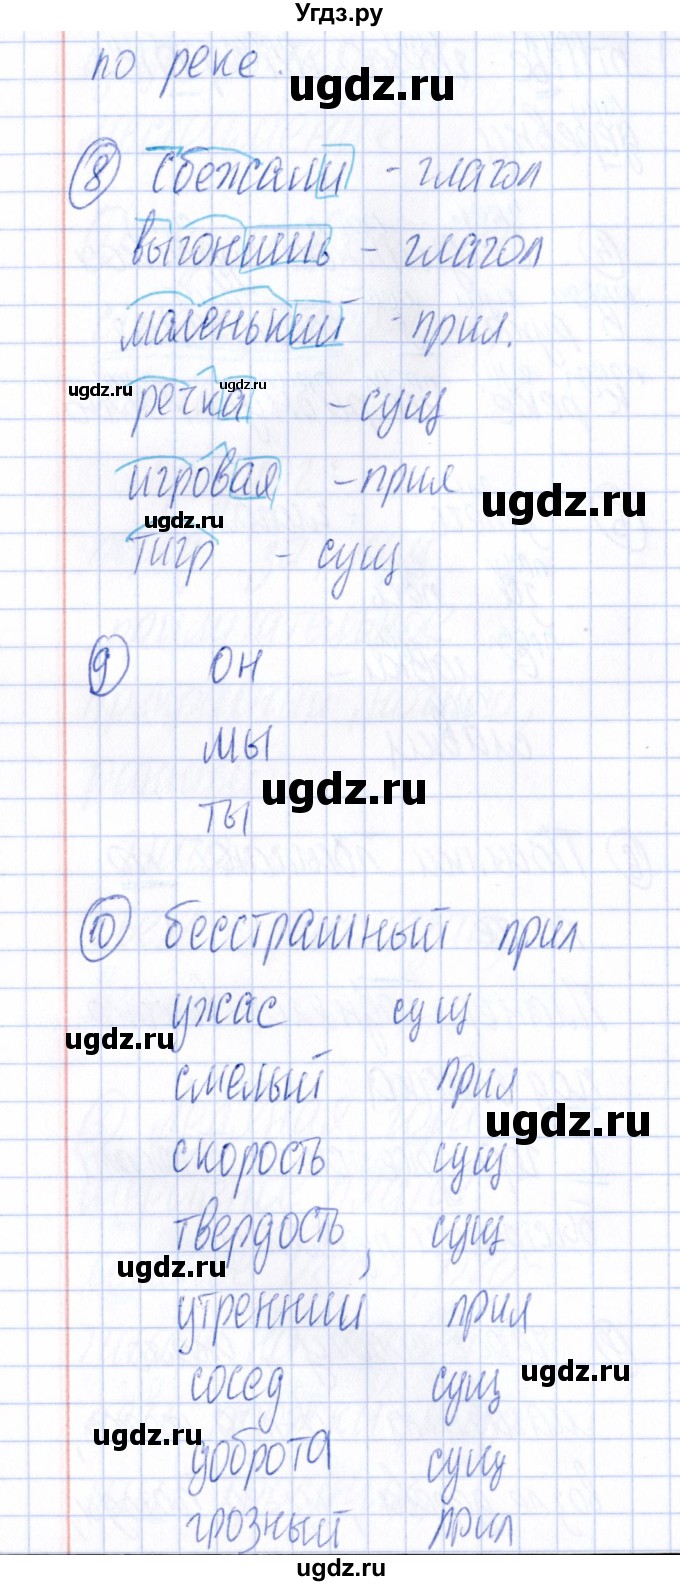 Угдз.ру
по реке.
ugdz.ru
8 сбежали - глагол
выгонишь - глагол
маленький - прил.
ugdz.ru
ugdz.ru
речка - сущ
игровая - прил
ugdz.ru
ugdz.ru
тигр - сущ
9 он
мы
ugdz.ru
ты
10 бесстрашный прил
ужас сущ
ugdz.ru
смелый прил
ugdz.ru
скорость сущ
твердость, сущ
ugdz.ru
утренний прил
ugdz.ru
сосед сущ
ugdz.ru
доброта сущ
грозный прил
ugdz.ru